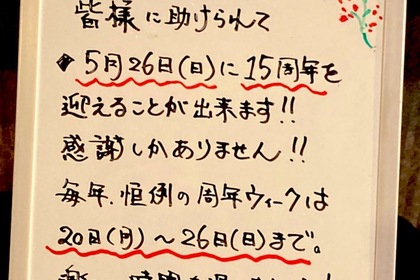 皆様に助けられて
◆5月26日(日)に15周年を
迎えることが出来ます!!
感謝しかありません!!
毎年、恒例の周年ウィークは
20日(月)〜26日(日)まで。